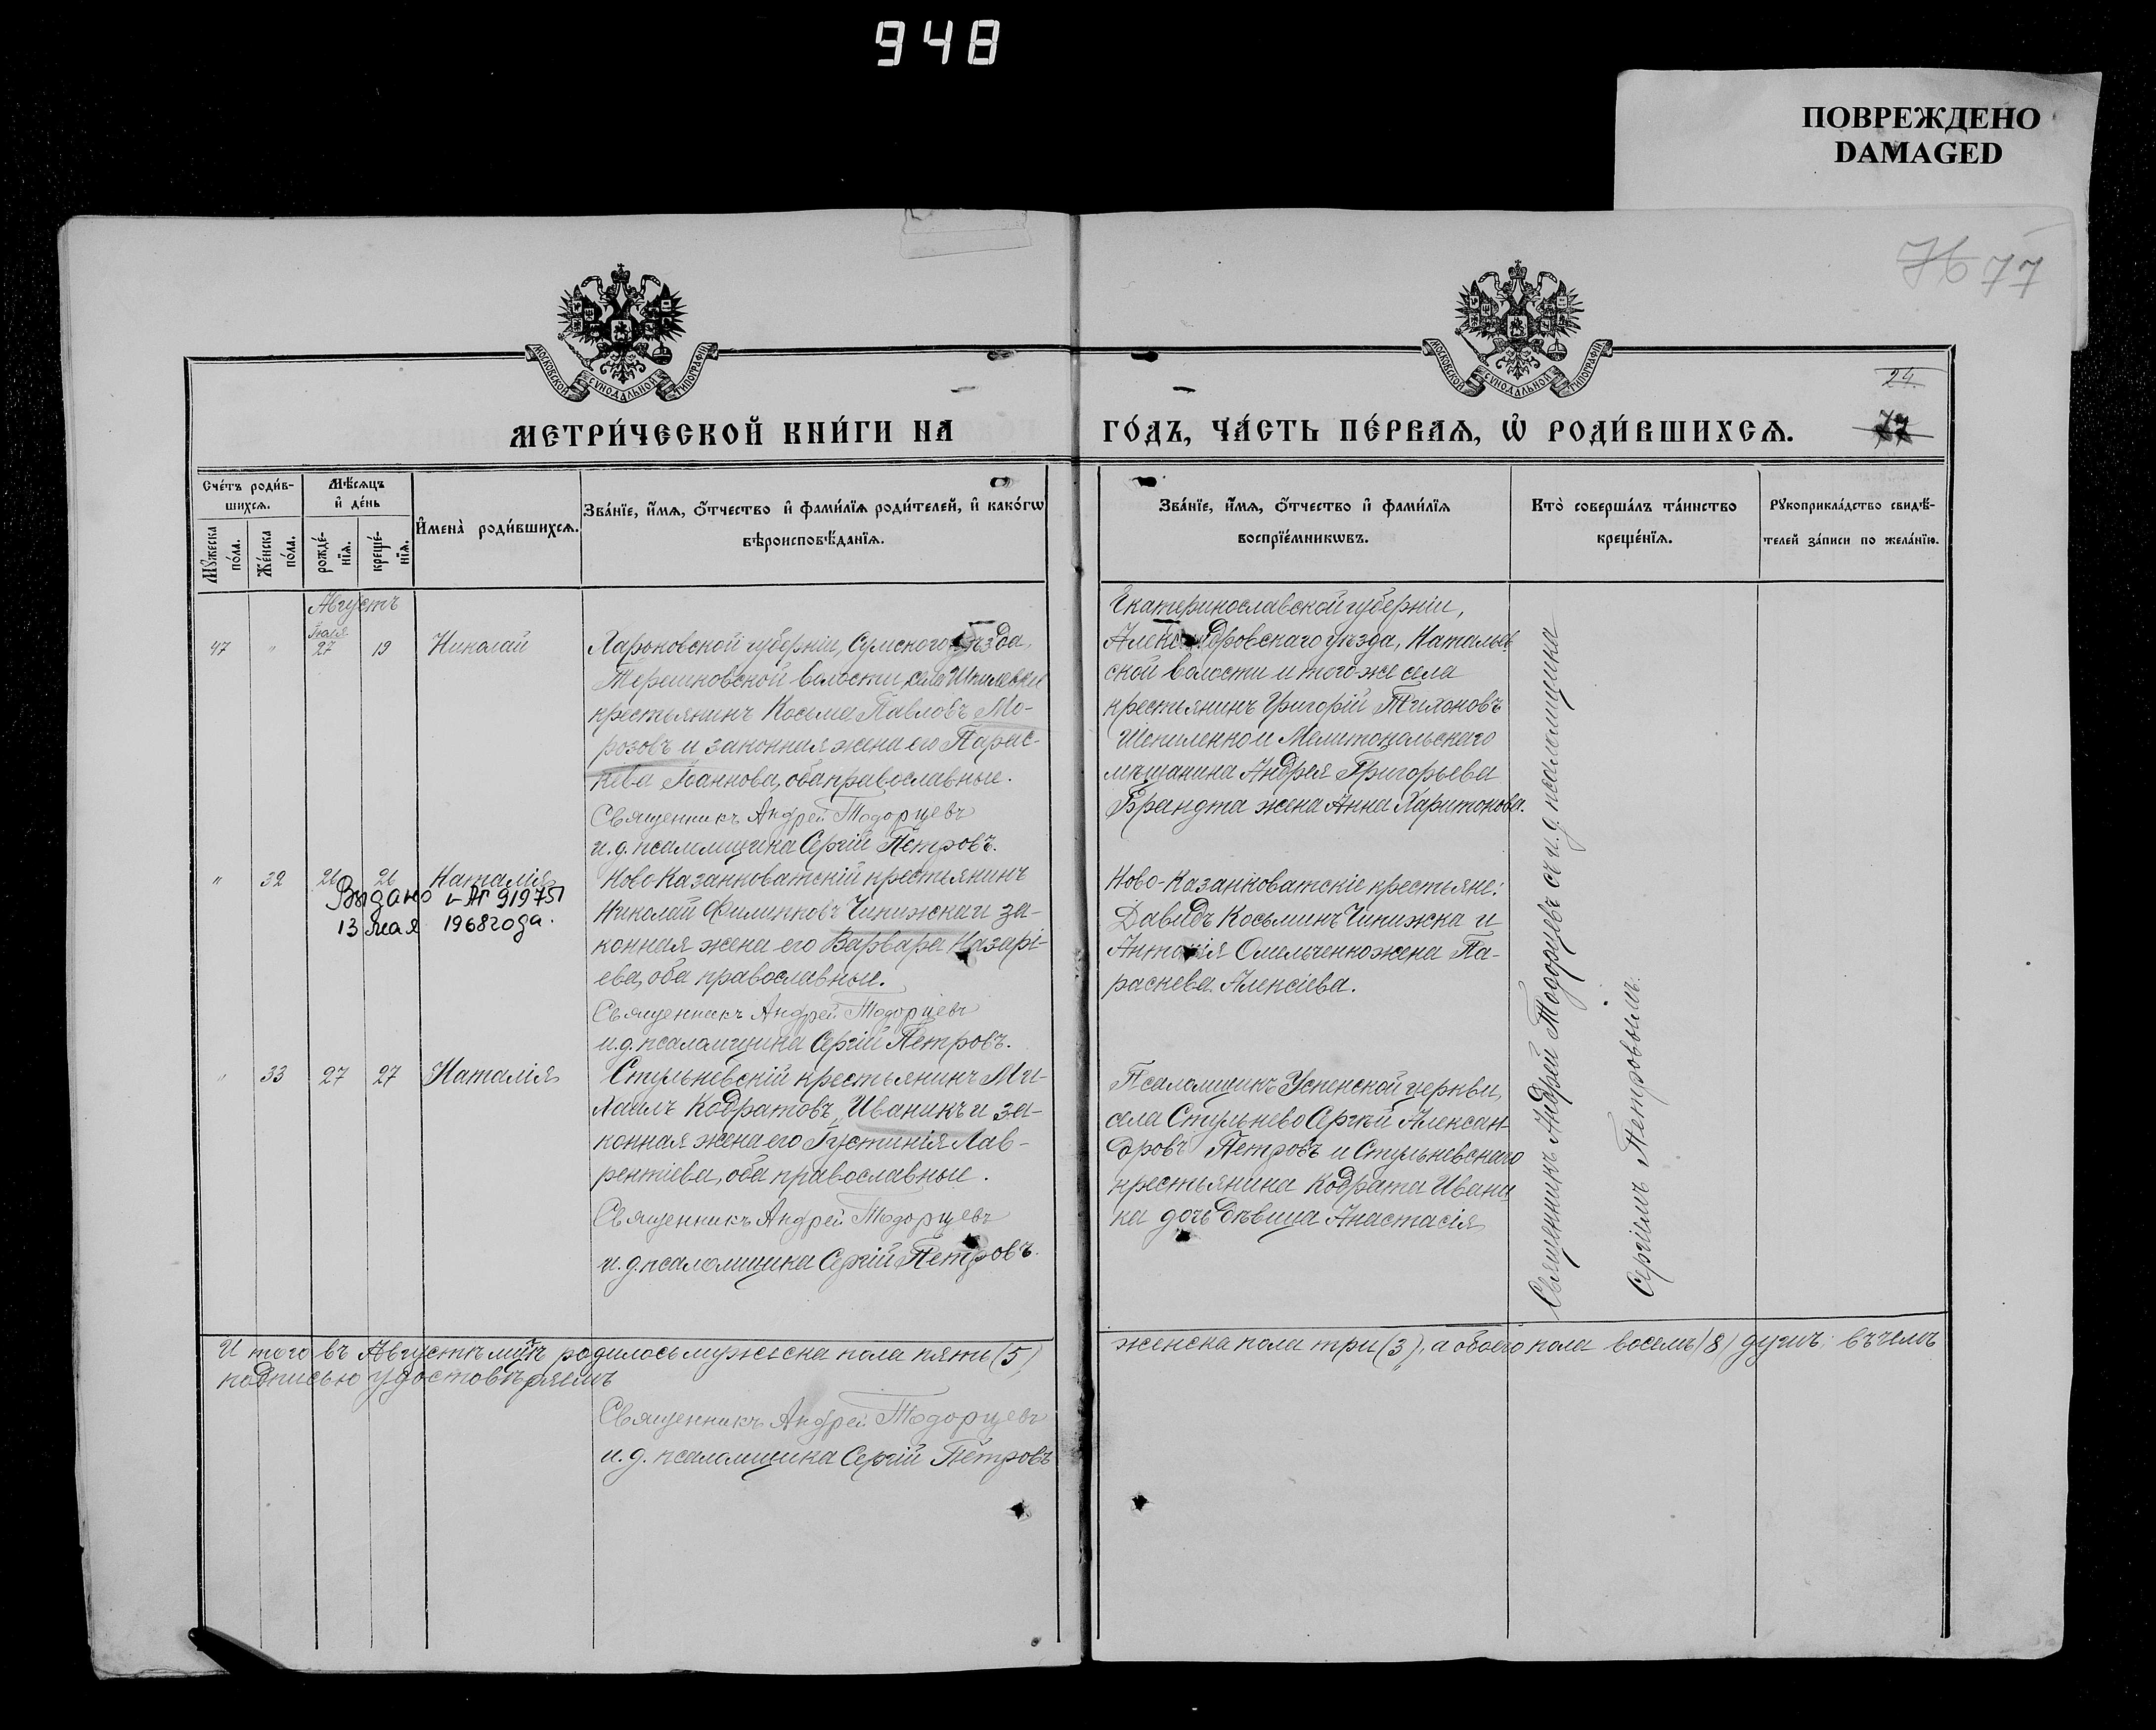 948
ПОВРЕЖДЕНО
DAMAGED
76 77
МОСКОВСКОЙ СУНОДАЛЬНОЙ ТИПОГРАФІИ
МОСКОВСКОЙ СУНОДАЛЬНОЙ ТИПОГРАФІИ
24.
77
МЕТРИ́ЧЕСКОЙ КНИ́ГИ НА ГО́ДЪ, ЧА́СТЬ ПЕ́РВАѦ, Ѡ҆ РОДИ́ВШИХСѦ.
Сче́тъ роди́в-
шихсѧ.
Мꙋ́жеска
по́ла.
Же́нска
по́ла.
Мѣ́сѧцъ
и҆ де́нь
рожде́-
нїѧ.
креще́-
нїѧ.
И҆мена̀ роди́вшихсѧ.
Зва́нїе, и҆́мѧ, ѻ҆́тчество и҆ фами́лїѧ роди́телей, и҆ како́гѡ
вѣроисповѣ́данїѧ.
Зва́нїе, и҆́мѧ, ѻ҆́тчество и҆ фами́лїѧ
воспрїе́мникѡвъ.
Кто̀ соверша́лъ та́инство
креще́нїѧ.
Рꙋкоприкла́дство свидѣ́-
телей за́писи по жела́нїю.
Августъ
47 " Іюля 27 19 Николай
Харьковской губерніи, Сумского уѣзда,
Терешковской волости, села Шпилевки
крестьянинъ Косьма Павловъ Мо-
розовъ и законная жена его Парас-
кева Іоаннова, оба православные.
Священникъ Андрей Тодорцевъ
и. д. псаломщика Сергій Петровъ.
Екатеринославской губерніи,
Александровскаго уѣзда, Натальев
ской волости и того же села
крестьянинъ Григорій Тихоновъ
Шепиленко и Мелитопольскаго
мѣщанина Андрея Григорьева
Брандта жена Анна Харитонова.
" 32 26 26 Наталія
Видано 919751
13 мая 1968 года.
Ново-Казанковатскій крестьянинъ
Николай Филипповъ Чинижска и за-
конная жена его Варвара Назарі-
ева, оба православные.
Священникъ Андрей Тодорцевъ
и. д. псаломщика Сергій Петровъ.
Ново-Казанковатскіе крестьяне:
Давидъ Косьминъ Чинижска и
Антонія Омельченко жена Па-
раскева Алексіева.
" 33 27 27 Наталія
Стульневскій крестьянинъ Ми-
хаилъ Кодратовъ Иваникъ и за-
конная жена его Іустинія Лав-
рентіева, оба православные.
Священникъ Андрей Тодорцевъ
и. д. псаломщика Сергій Петровъ.
Псаломщикъ Успенской церкви,
села Стульнево Сергѣй Алексан-
дровъ Петровъ и Стульневскаго
крестьянина Кодрата Ивани
ка дочь дѣвица Анастасія
Священникъ Андрей Тодорцевъ съ и. д. псаломщика
Сергіемъ Петровымъ.
И того въ Августѣ м-цѣ родилось мужеска пола пять (5)
женска пола три (3), а обоего пола восемь (8) душъ; въ чемъ
подписью удостовѣряемъ
Священникъ Андрей Тодорцевъ
и. д. псаломщика Сергій Петровъ